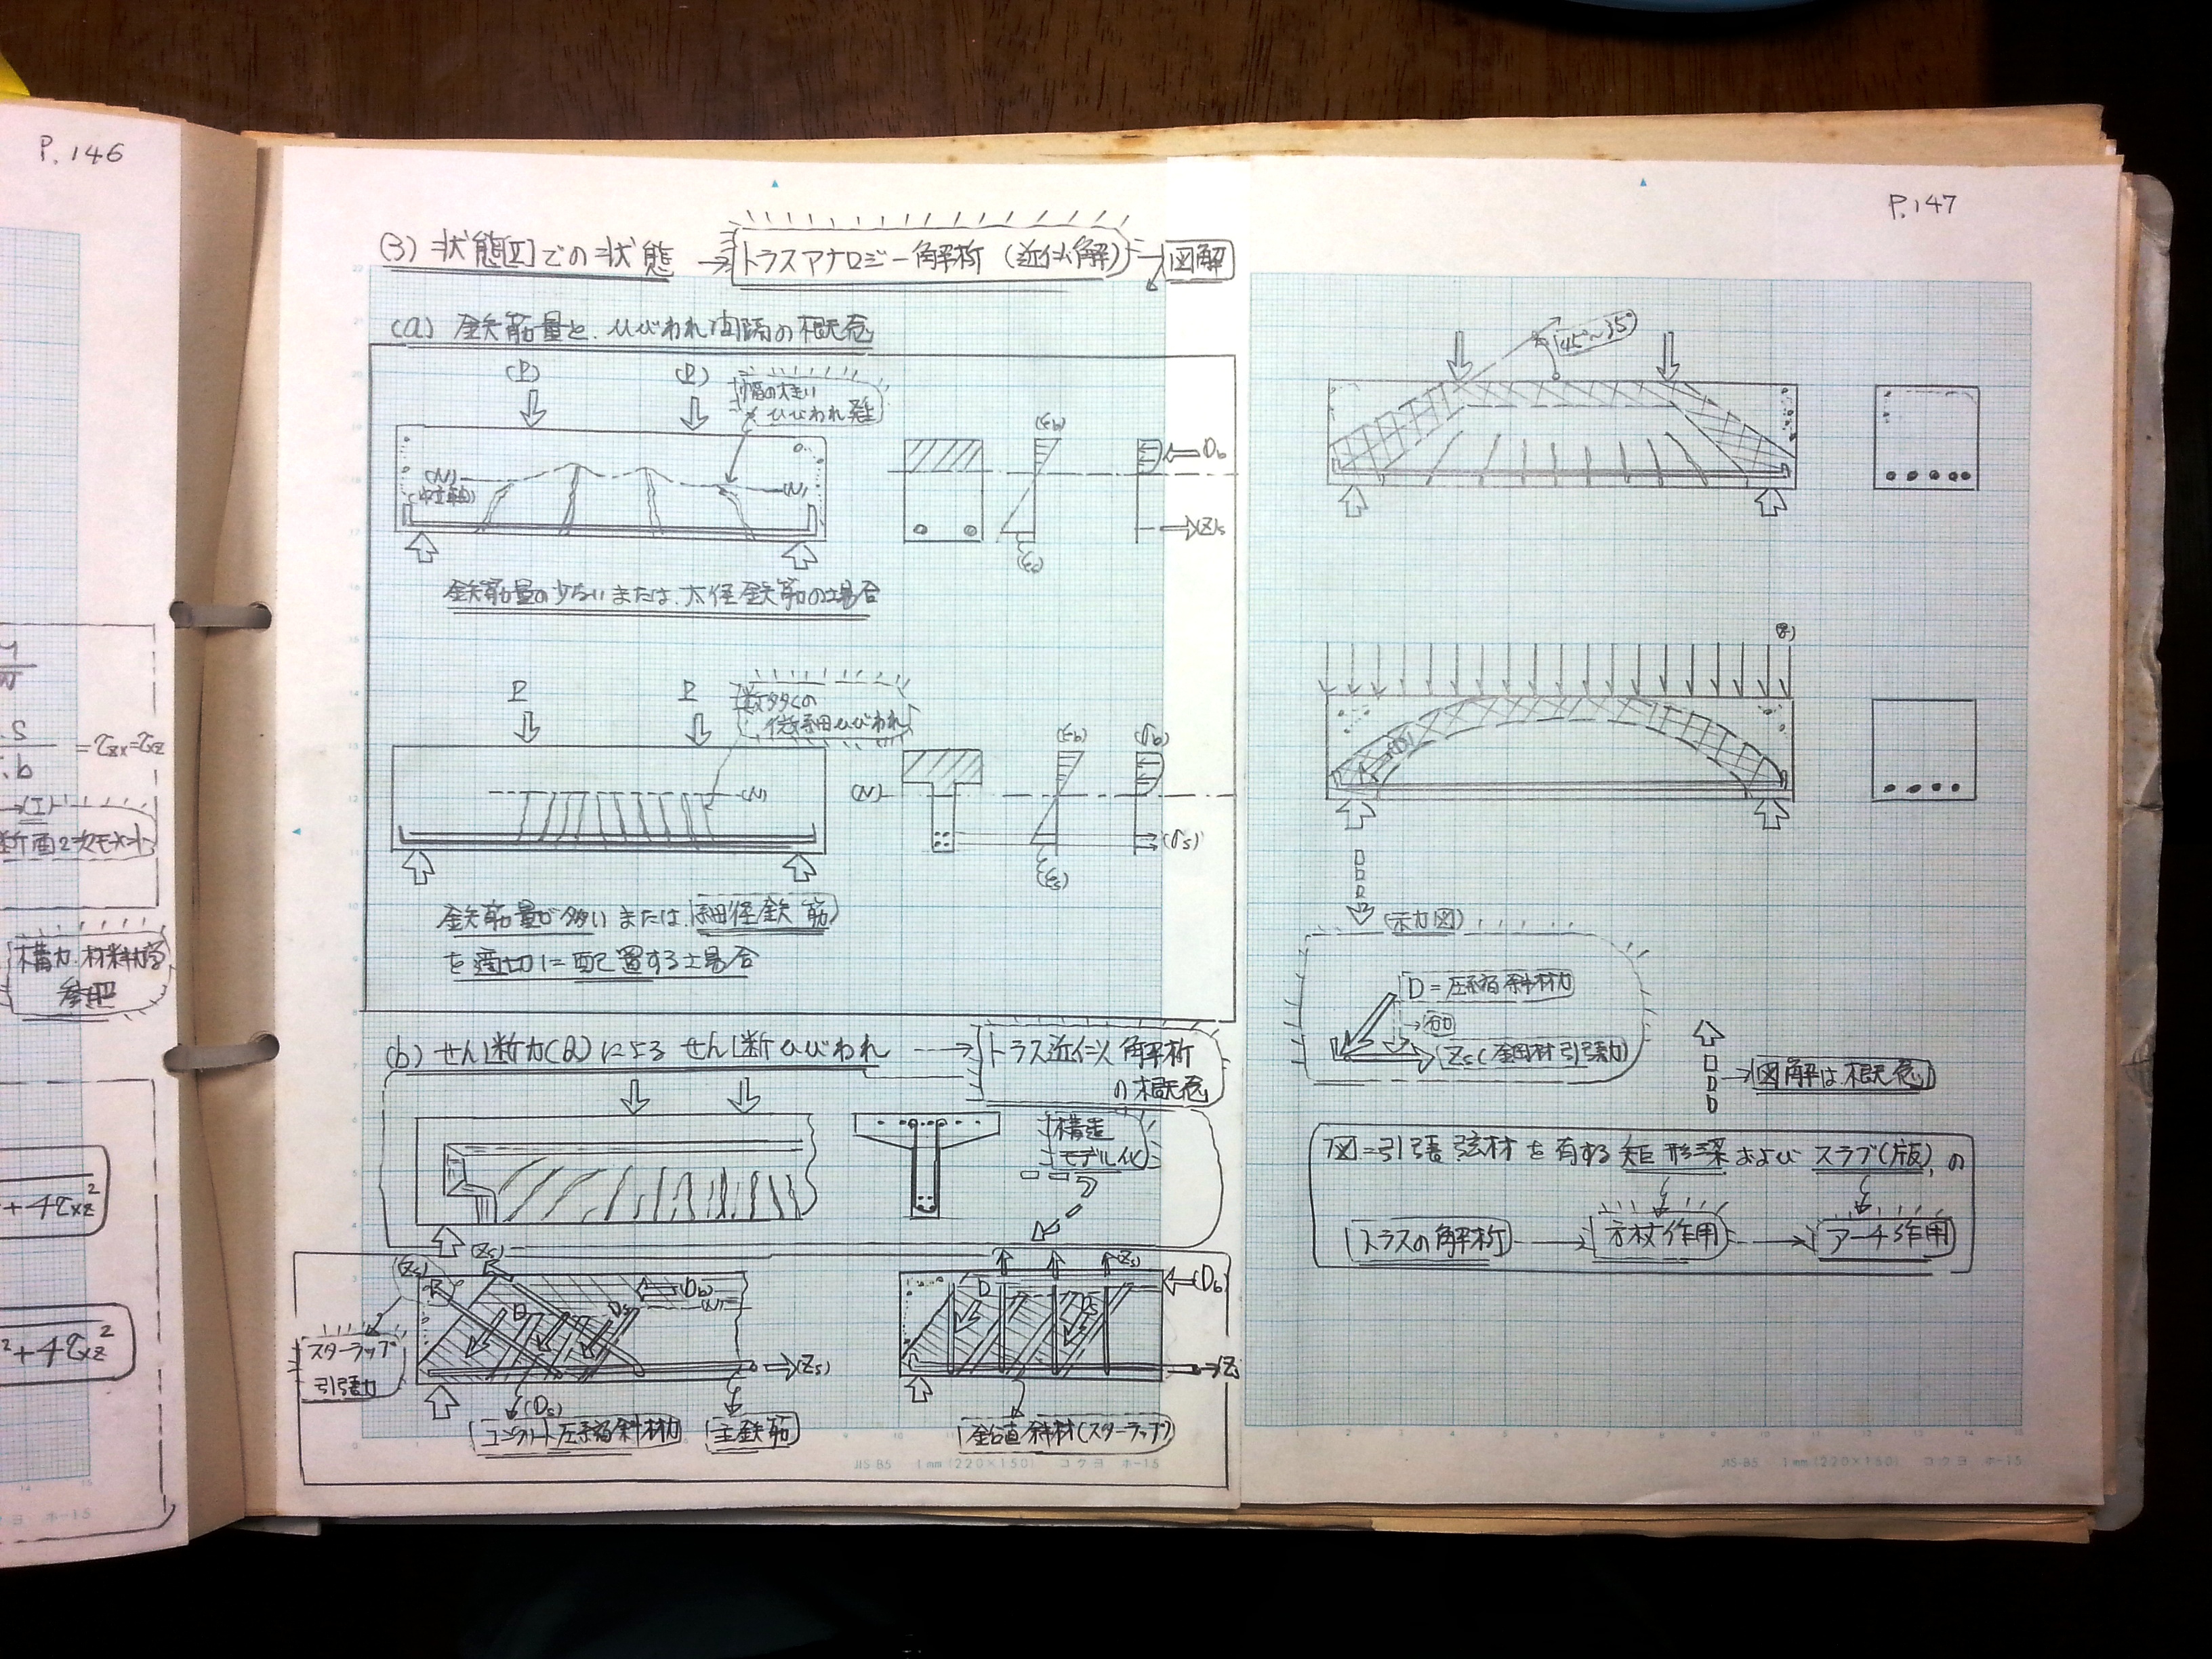 P.146
= τzx = τxz
S
I.b
→(I)
断面2次モーメント
構力.材料力学
参照
+4τxz²
²+4τxz²
(3) 状態[Ⅱ]での状態 → トラスアナロジー解析 (近似解) → 図解
(a) 鉄筋量と、ひびわれ間隔の概念
(P) (P)
幅の大きい
ひびわれ発生
(N)
(中立軸)
(N)
(εb)
Db
Zs
(εs)
鉄筋量の少ないまたは、太径鉄筋の場合
P P
数多くの
微細ひびわれ
(N)
(N)
(εb)
(σb)
(σs)
(εs)
鉄筋量が多いまたは、細径鉄筋
を適切に配置する場合
(b) せん断力(Q)によるせん断ひびわれ → トラス近似解析
の概念
構造
モデル化
(Zs)
(Zs)
(Db)
(N)
D
Ds
(Zs)
スターラップ
引張力
(Ds)
コンクリート圧縮斜材力
主鉄筋
(Zs)
D
Ds
(Db)
(Z
鉛直斜材(スターラップ)
JIS-B5 1mm(220×150) コクヨ ホ-15
P.147
45°~35°
(D)
(示力図)
D=圧縮斜材力
Zs(鋼材引張力)
図解は概念
図=引張弦材を有する矩形梁およびスラブ(版)の
トラスの解析 → 方杖作用 → アーチ作用
JIS-B5 1mm(220×150) コクヨ ホ-15